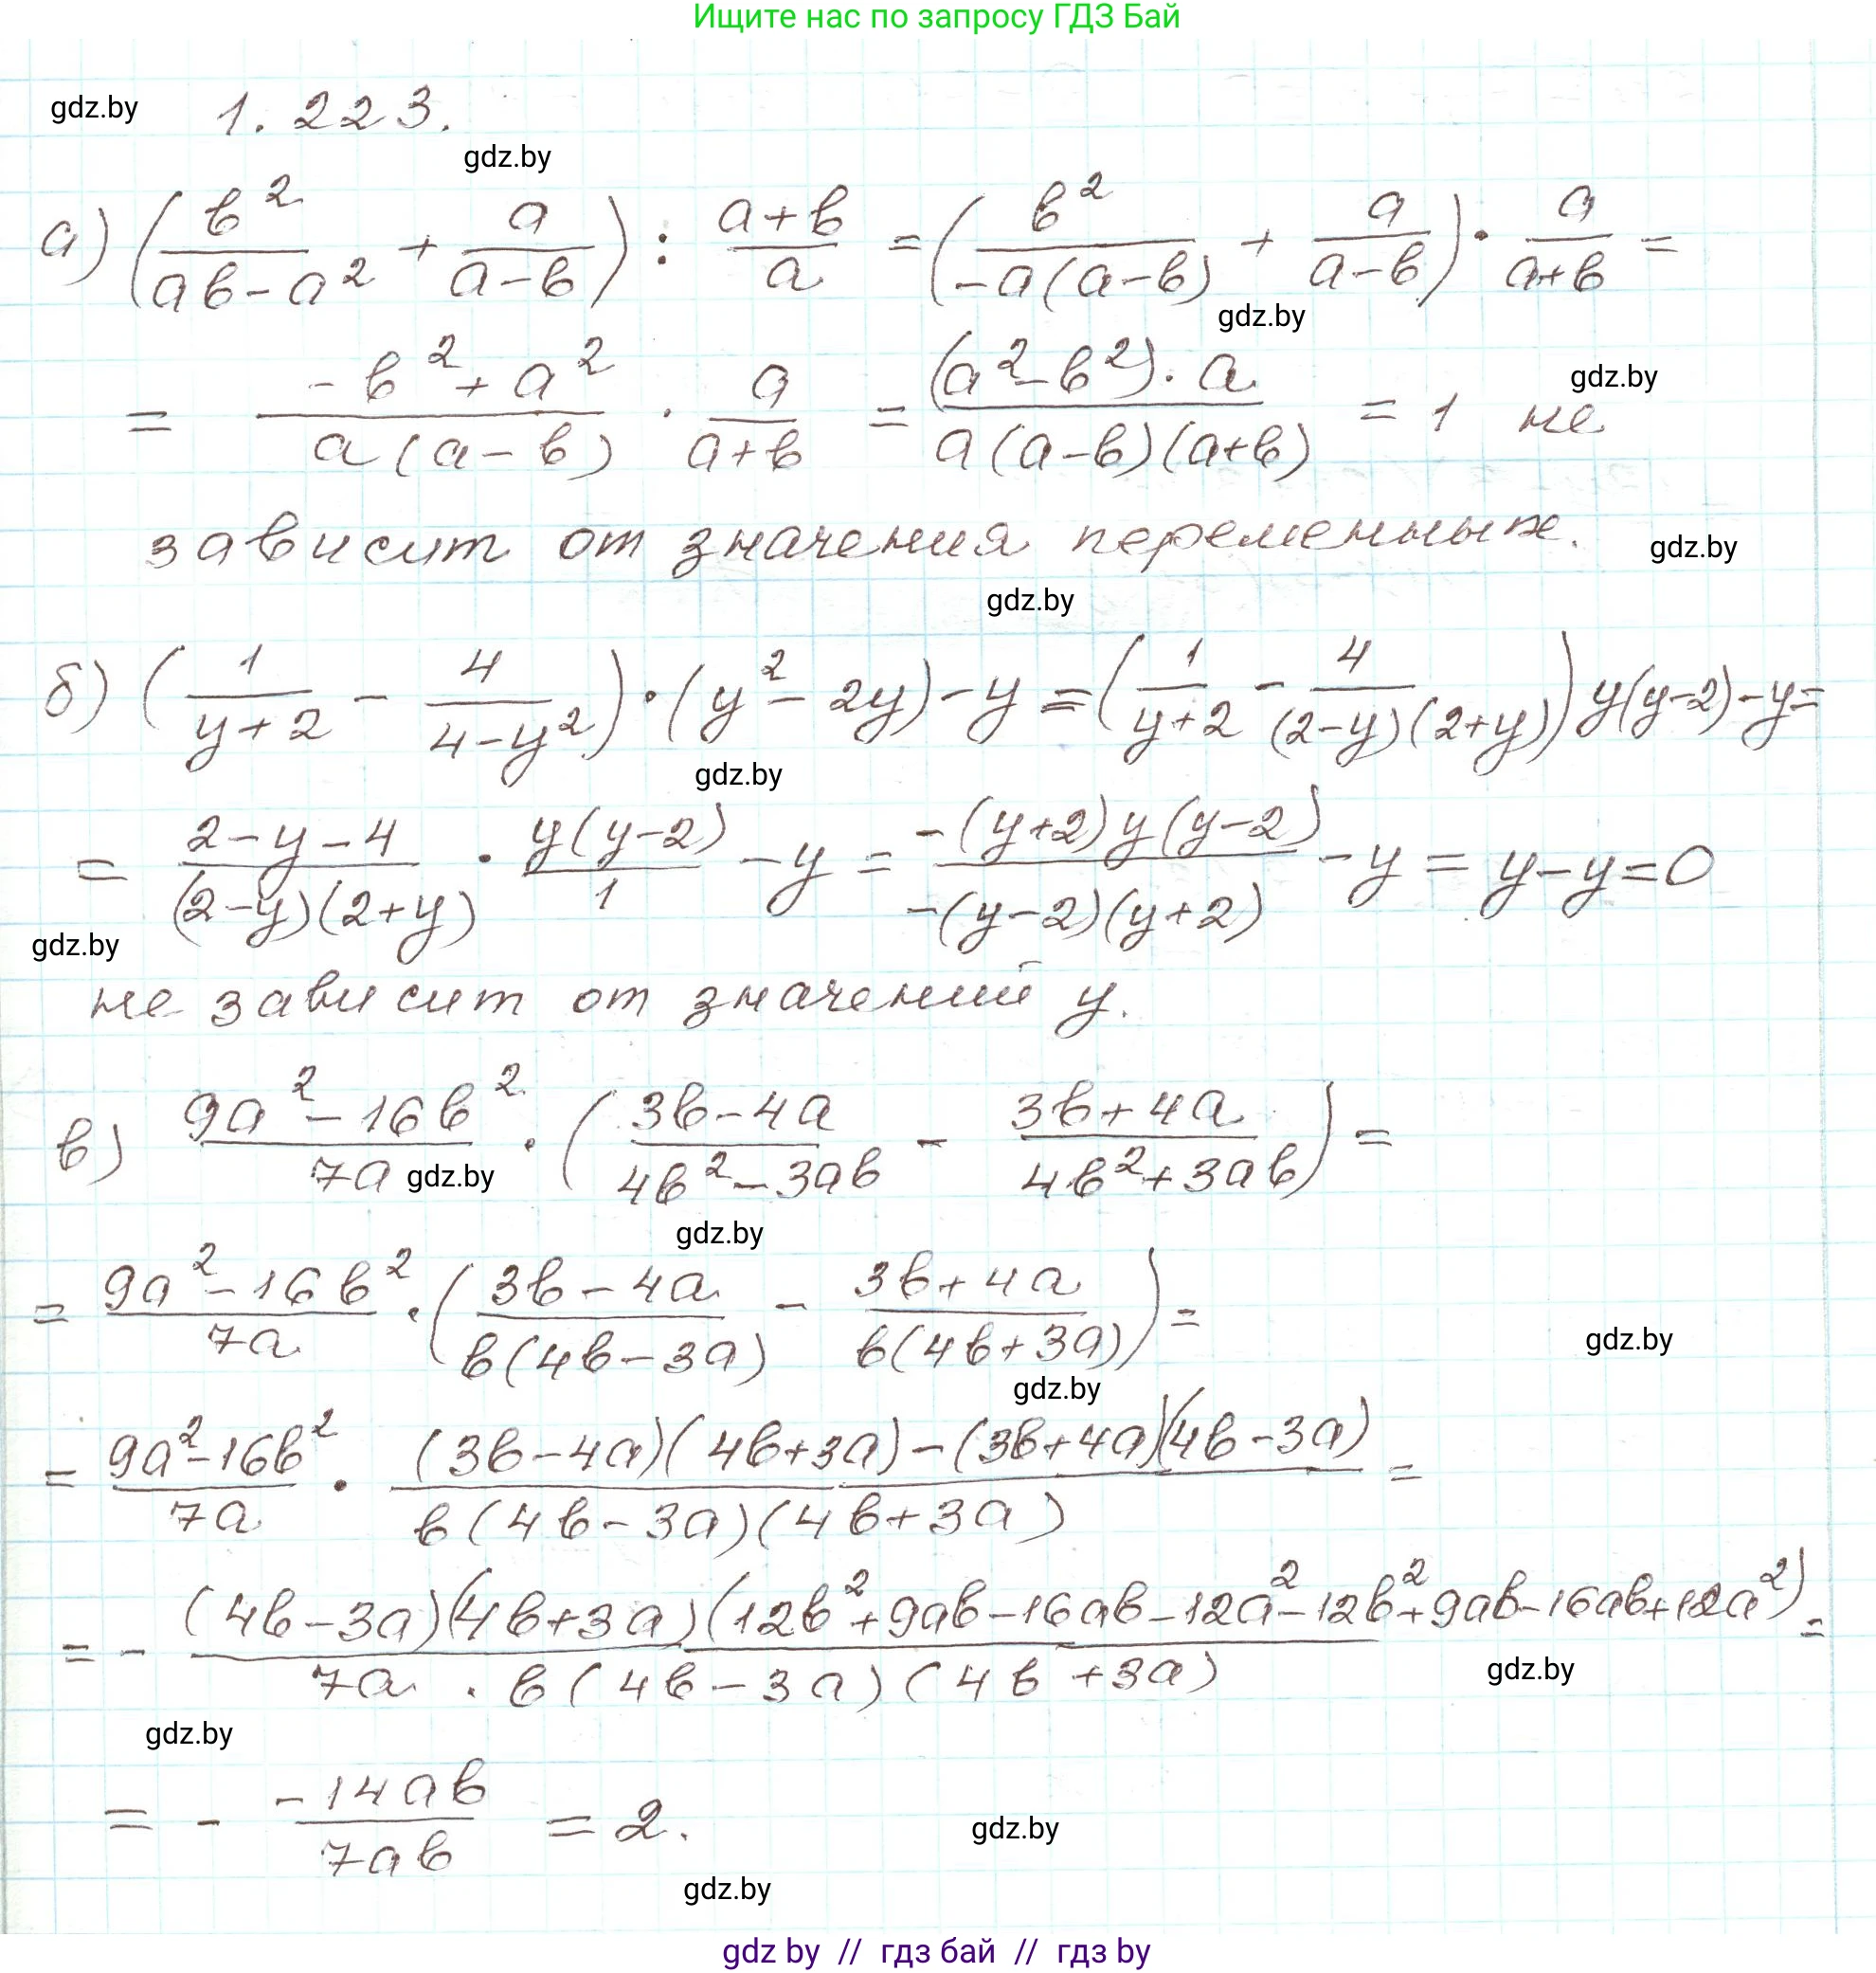 Ищите нас по запросу ГДЗ Бай
gdz.by 1.223.
gdz.by
а) (в²/(ав-а²) + а/(а-в)) : (а+в)/а = (в²/(-а(а-в)) + а/(а-в)) · а/(а+в) =
gdz.by
= (-в²+а²)/(а(а-в)) · а/(а+в) = ((а²-в²)·а)/(а(а-в)(а+в)) = 1 не
gdz.by
зависит от значения переменных.
gdz.by
gdz.by
б) (1/(y+2) - 4/(4-y²))·(y²-2y)-y = (1/(y+2) - 4/((2-y)(2+y))) y(y-2)-y=
gdz.by
= (2-y-4)/((2-y)(2+y)) · y(y-2)/1 - y = (-(y+2)y(y-2))/(-(y-2)(y+2)) - y = y-y=0
gdz.by
не зависит от значений y.
в) (9а²-16в²)/(7а) · ((3в-4а)/(4в²-3ав) - (3в+4а)/(4в²+3ав)) =
gdz.by
gdz.by
= (9а²-16в²)/(7а) · ((3в-4а)/(в(4в-3а)) - (3в+4а)/(в(4в+3а))) =
gdz.by
gdz.by
= (9а²-16в²)/(7а) · ((3в-4а)(4в+3а)-(3в+4а)(4в-3а))/(в(4в-3а)(4в+3а)) =
= - ((4в-3а)(4в+3а)(12в²+9ав-16ав-12а²-12в²+9ав-16ав+12а²))/(7а·в(4в-3а)(4в+3а)) =
gdz.by
gdz.by
= - (-14ав)/(7ав) = 2.
gdz.by
gdz.by
gdz by // гдз бай // гдз by